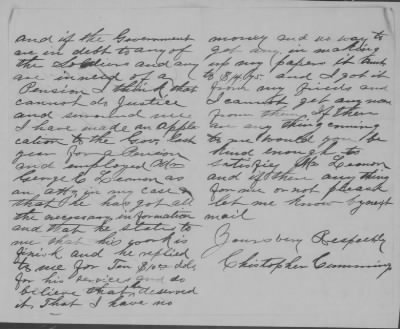 and if the Government
are in debt to any of
the Soldiers and any
are in need of a
Pension I think that
cannot do Justice
and
I have made an Appli
cation to the Gov. last
year for a Pension
and employed Mr
George C. Lemon as
an atty in my case
that he has got all
the necessary information
and that he states to
me that his work is
finish and he replied
to me for Ten $10.00 dols
for his services and so
believe that he deserved
it. That I have no
money and no way to
get any, in making
up my papers it took
to $14.75 and I got it
from my friends and
I cannot get any more
from them If there
are any thing coming
to me would you be
kind enough to
satisfy Mr Lemon
and if there any thing
for me or not please
let me know by next
mail
Yours Very Respectly
Christopher Cumming